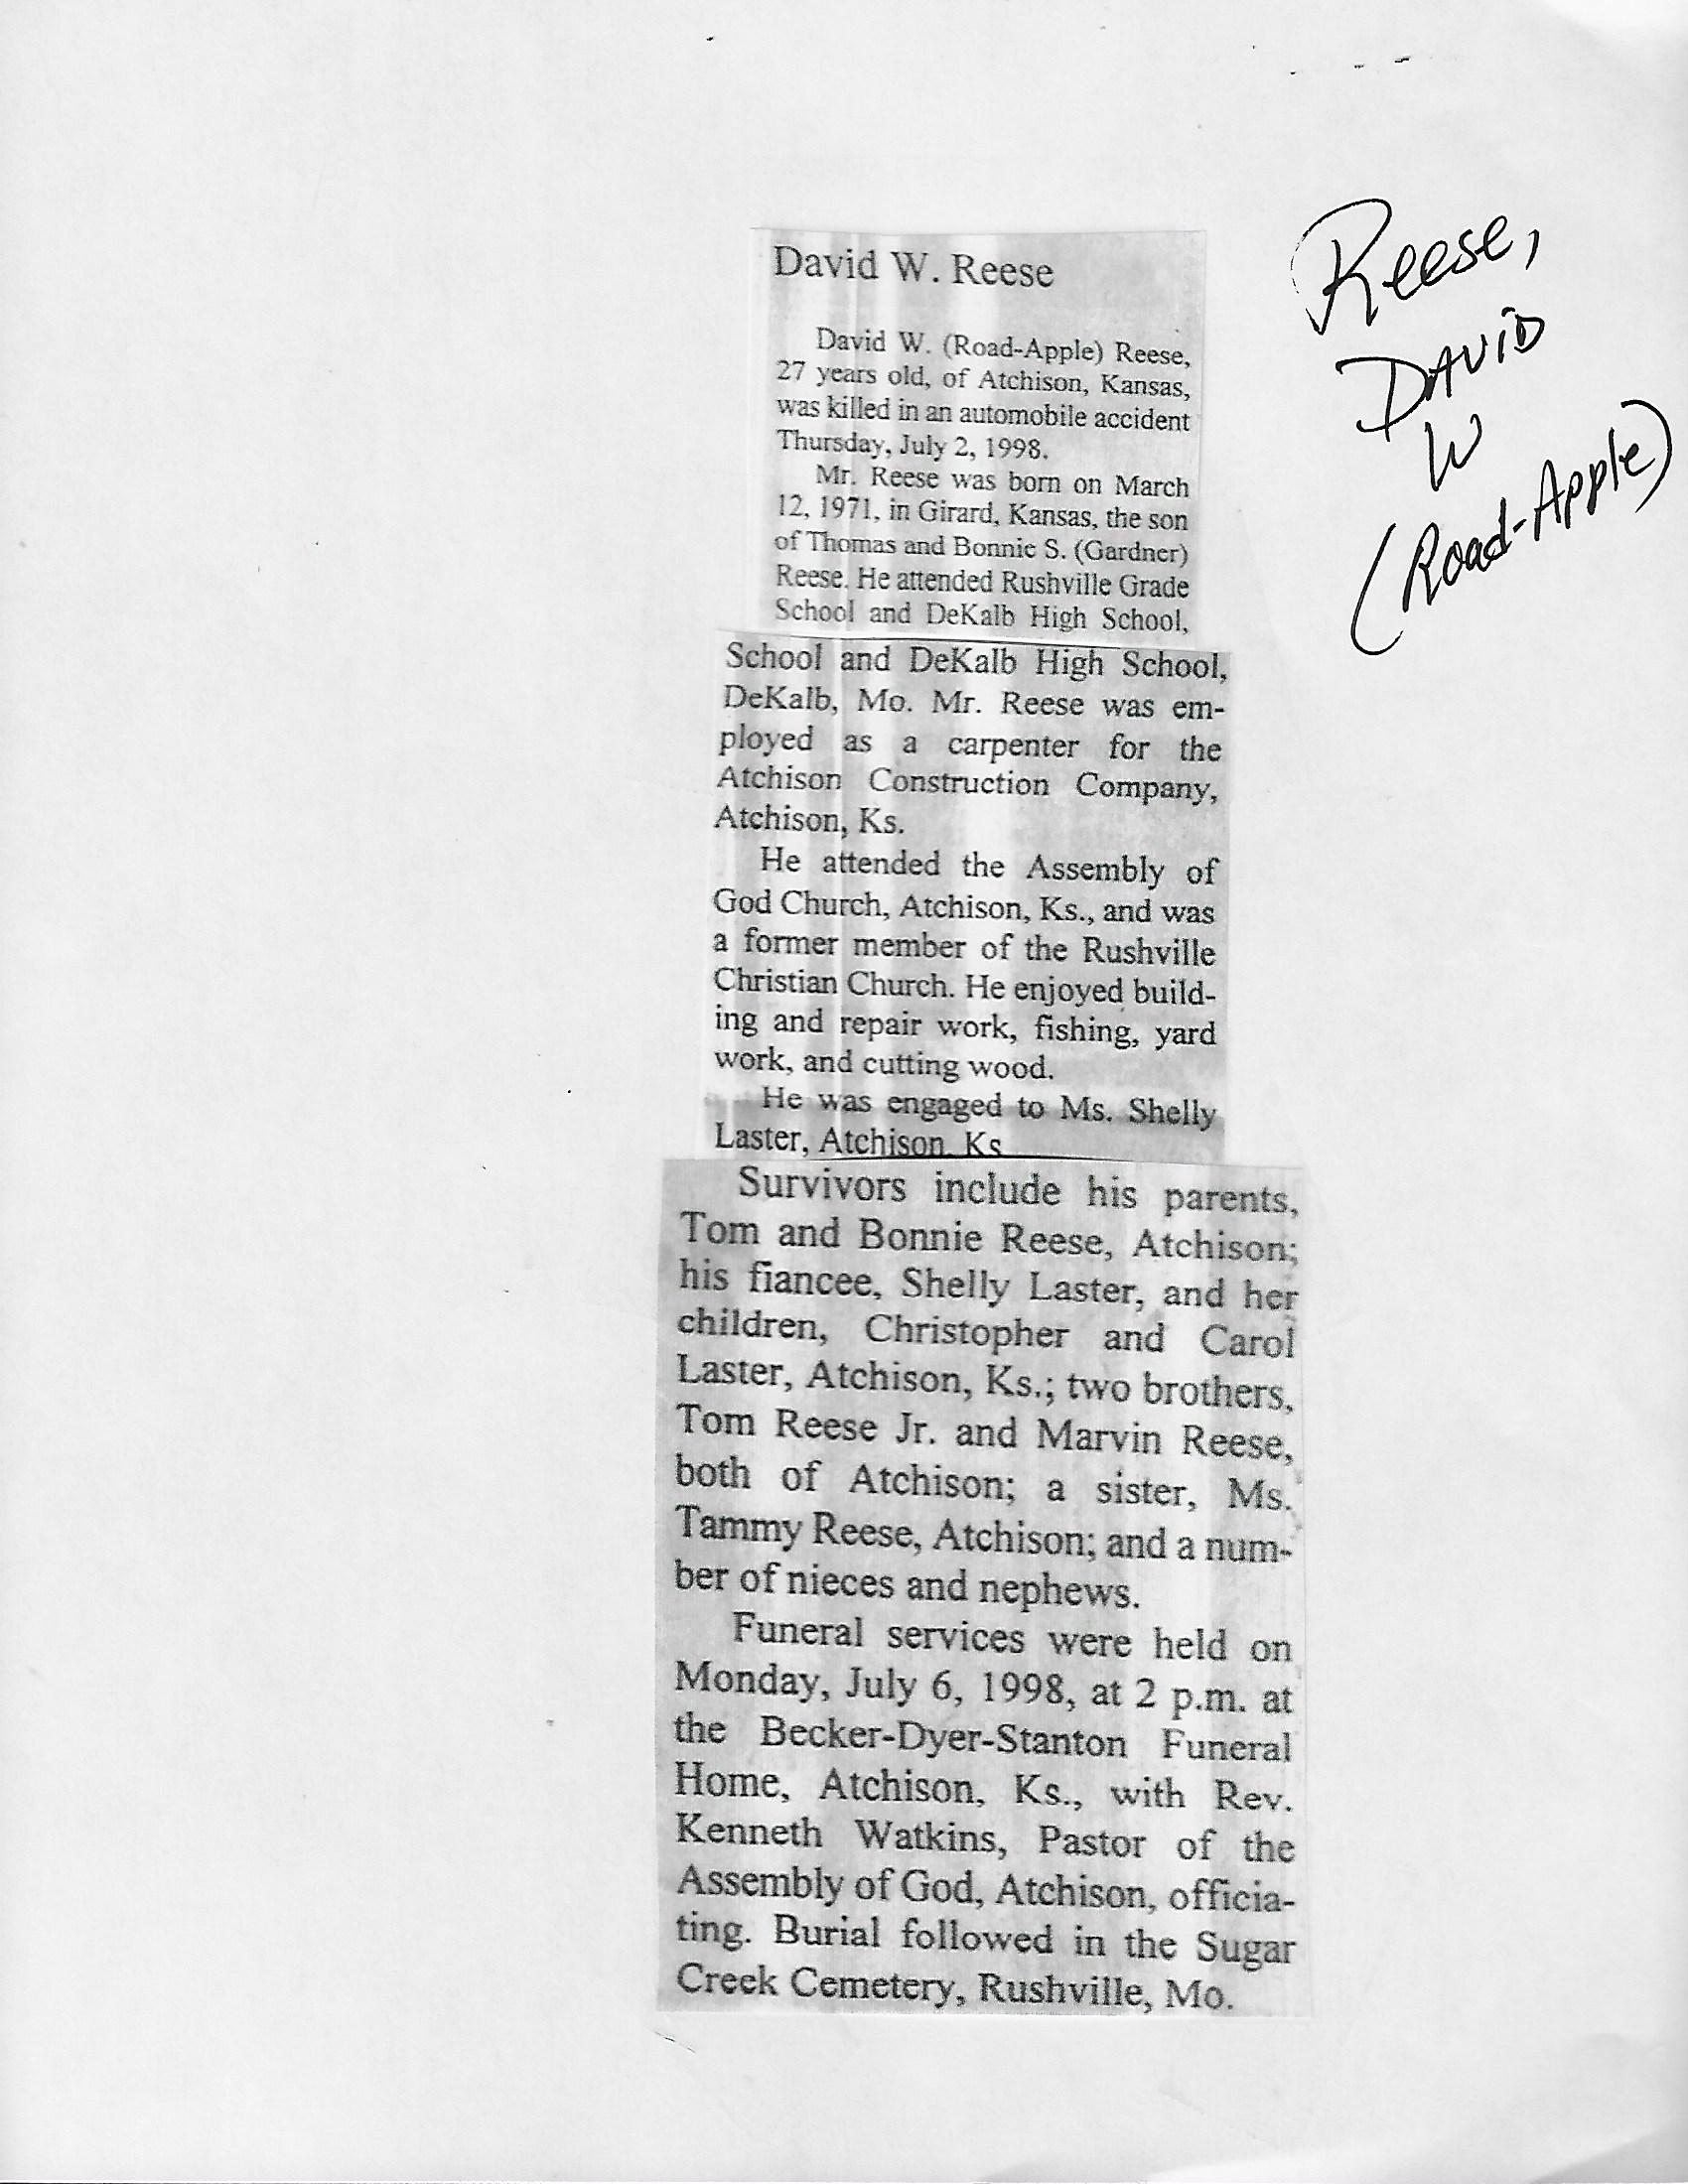 David W. Reese
David W. (Road-Apple) Reese,
27 years old, of Atchison, Kansas,
was killed in an automobile accident
Thursday, July 2, 1998.
Mr. Reese was born on March
12, 1971, in Girard, Kansas, the son
of Thomas and Bonnie S. (Gardner)
Reese. He attended Rushville Grade
School and DeKalb High School,
School and DeKalb High School,
DeKalb, Mo. Mr. Reese was em-
ployed as a carpenter for the
Atchison Construction Company,
Atchison, Ks.
He attended the Assembly of
God Church, Atchison, Ks., and was
a former member of the Rushville
Christian Church. He enjoyed build-
ing and repair work, fishing, yard
work, and cutting wood.
He was engaged to Ms. Shelly
Laster, Atchison, Ks
Survivors include his parents,
Tom and Bonnie Reese, Atchison;
his fiancee, Shelly Laster, and her
children, Christopher and Carol
Laster, Atchison, Ks.; two brothers,
Tom Reese Jr. and Marvin Reese,
both of Atchison; a sister, Ms.
Tammy Reese, Atchison; and a num-
ber of nieces and nephews.
Funeral services were held on
Monday, July 6, 1998, at 2 p.m. at
the Becker-Dyer-Stanton Funeral
Home, Atchison, Ks., with Rev.
Kenneth Watkins, Pastor of the
Assembly of God, Atchison, officia-
ting. Burial followed in the Sugar
Creek Cemetery, Rushville, Mo.
Reese,
DAVID
W
(Road-Apple)